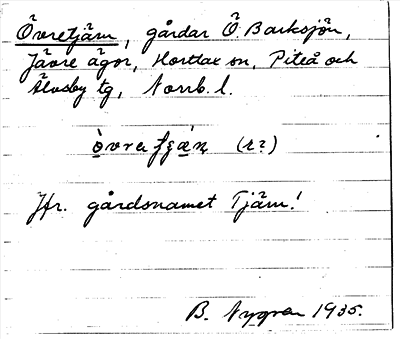 Övretjärn, gårdar Ö Barksjön,
Jävre ägor, Hortlax sn, Piteå och
Älvsby tg, Norrb. l.
(r?)
Jfr. gårdsnamet Tjärn!
B. Nygren 1935.